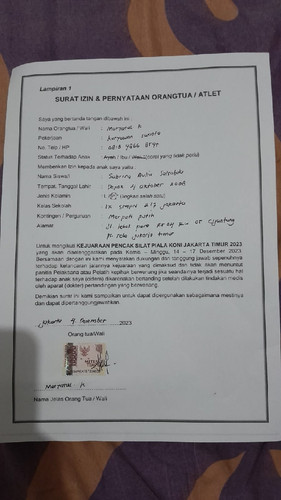 Lampiran 1
SURAT IZIN & PERNYATAAN ORANGTUA / ATLET
Saya yang bertanda tangan dibawah ini:
Nama Orangtua / Wali : Maryanti A
Pekerjaan : karyawan swasta
No. Telp / HP :
Status Terhadap Anak : Ayah / Ibu / Wali
Memberikan izin kepada anak saya yaitu :
Nama Siswa/i :
Tempat, Tanggal Lahir : Depok, 9 oktober 2008
Jenis Kelamin :
Kelas Sekolah : IX smpn 217 jakarta
Kontingen / Perguruan : Merpati putih
Alamat :
jakarta timur
Untuk mengikuti KEJUARAAN PENCAK SILAT PIALA KONI JAKARTA TIMUR 2023
yang akan diselenggarakan pada Kamis – Minggu, 14 – 17 Desember 2023.
Bersamaan dengan ini kami menyatakan dukungan dan tanggung jawab sepenuhnya
terhadap kelancaran jalannya kejuaraan yang dimaksud dan tidak akan menuntut
panitia Pelaksana atau Pelatih kepihak berwenang jika seandainya terjadi sesuatu hal
terhadap anak saya (cidera) dikarenakan bertanding setelah dilakukan tindakan medis
oleh aparat (dokter) pertandingan yang berwenang.
Demikian surat ini kami sampaikan untuk dapat dipergunakan sebagaimana mestinya
dan dapat dipertanggungjawabkan.
Jakarta, 9, November 2023
Orang tua/Wali
Maryanti A
Nama Jelas Orang Tua / Wali